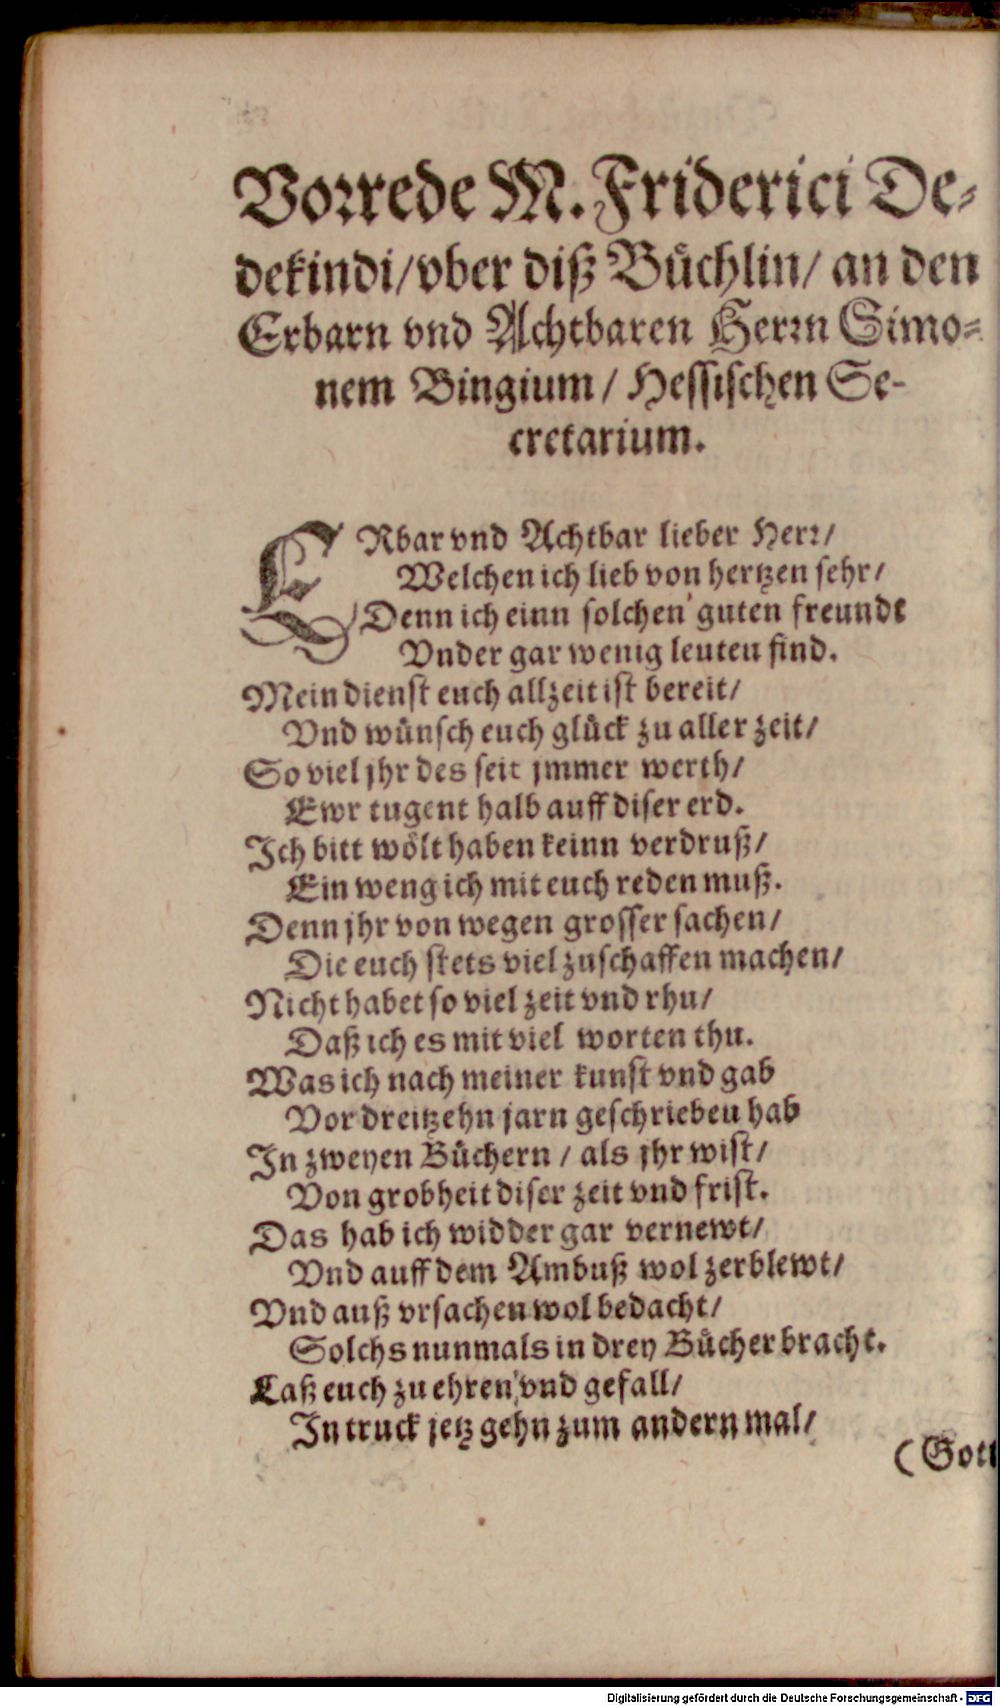 Vorrede M. Friderici De-
dekindi/ vber diß Buͤchlin/ an den
Erbarn vnd Achtbaren Herrn Simo-
nem Bingium / Hessischen Se-
cretarium.
ERbar vnd Achtbar lieber Herr/
Welchen ich lieb von hertzen sehr/
Denn ich einn solchen guten freundt
Vnder gar wenig leuten find.
Mein dienst euch allzeit ist bereit/
Vnd wuͤnsch euch gluͤck zu aller zeit/
So viel jhr des seit jmmer werth/
Ewr tugent halb auff diser erd.
Ich bitt woͤlt haben keinn verdruß/
Ein weng ich mit euch reden muß.
Denn jhr von wegen grosser sachen/
Die euch stets viel zuschaffen machen/
Nicht habet so viel zeit vnd rhu/
Daß ich es mit viel worten thu.
Was ich nach meiner kunst vnd gab
Vor dreitzehn jarn geschrieben hab
In zweyen Buͤchern / als jhr wist/
Von grobheit diser zeit vnd frist.
Das hab ich widder gar vernewt/
Vnd auff dem Ambuß wol zerblewt/
Vnd auß vrsachen wol bedacht/
Solchs nunmals in drey Buͤcher bracht.
Laß euch zu ehren vnd gefall/
In truck jetz gehn zum andern mal/
(Gott
Digitalisierung gefördert durch die Deutsche Forschungsgemeinschaft - DFG